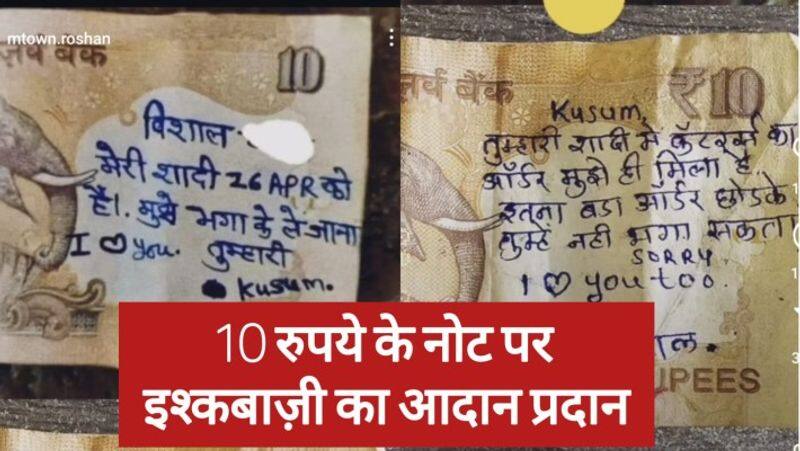 mtown.roshan
र्जव बैंक
10
विशाल
मेरी शादी 26 APR को
है। मुझे भगा के ले जाना
I ♡ you. तुम्हारी
Kusum.
र्जव बैंक
₹10
Kusum,
तुम्हारी शादी में कॅटरर्स का
ऑर्डर मुझे ही मिला है
इतना बडा ऑर्डर छोडके
तुम्हें नही भगा सकता
SORRY
I ♡ you too.
ाल.
UPEES
10 रुपये के नोट पर
इश्कबाज़ी का आदान प्रदान